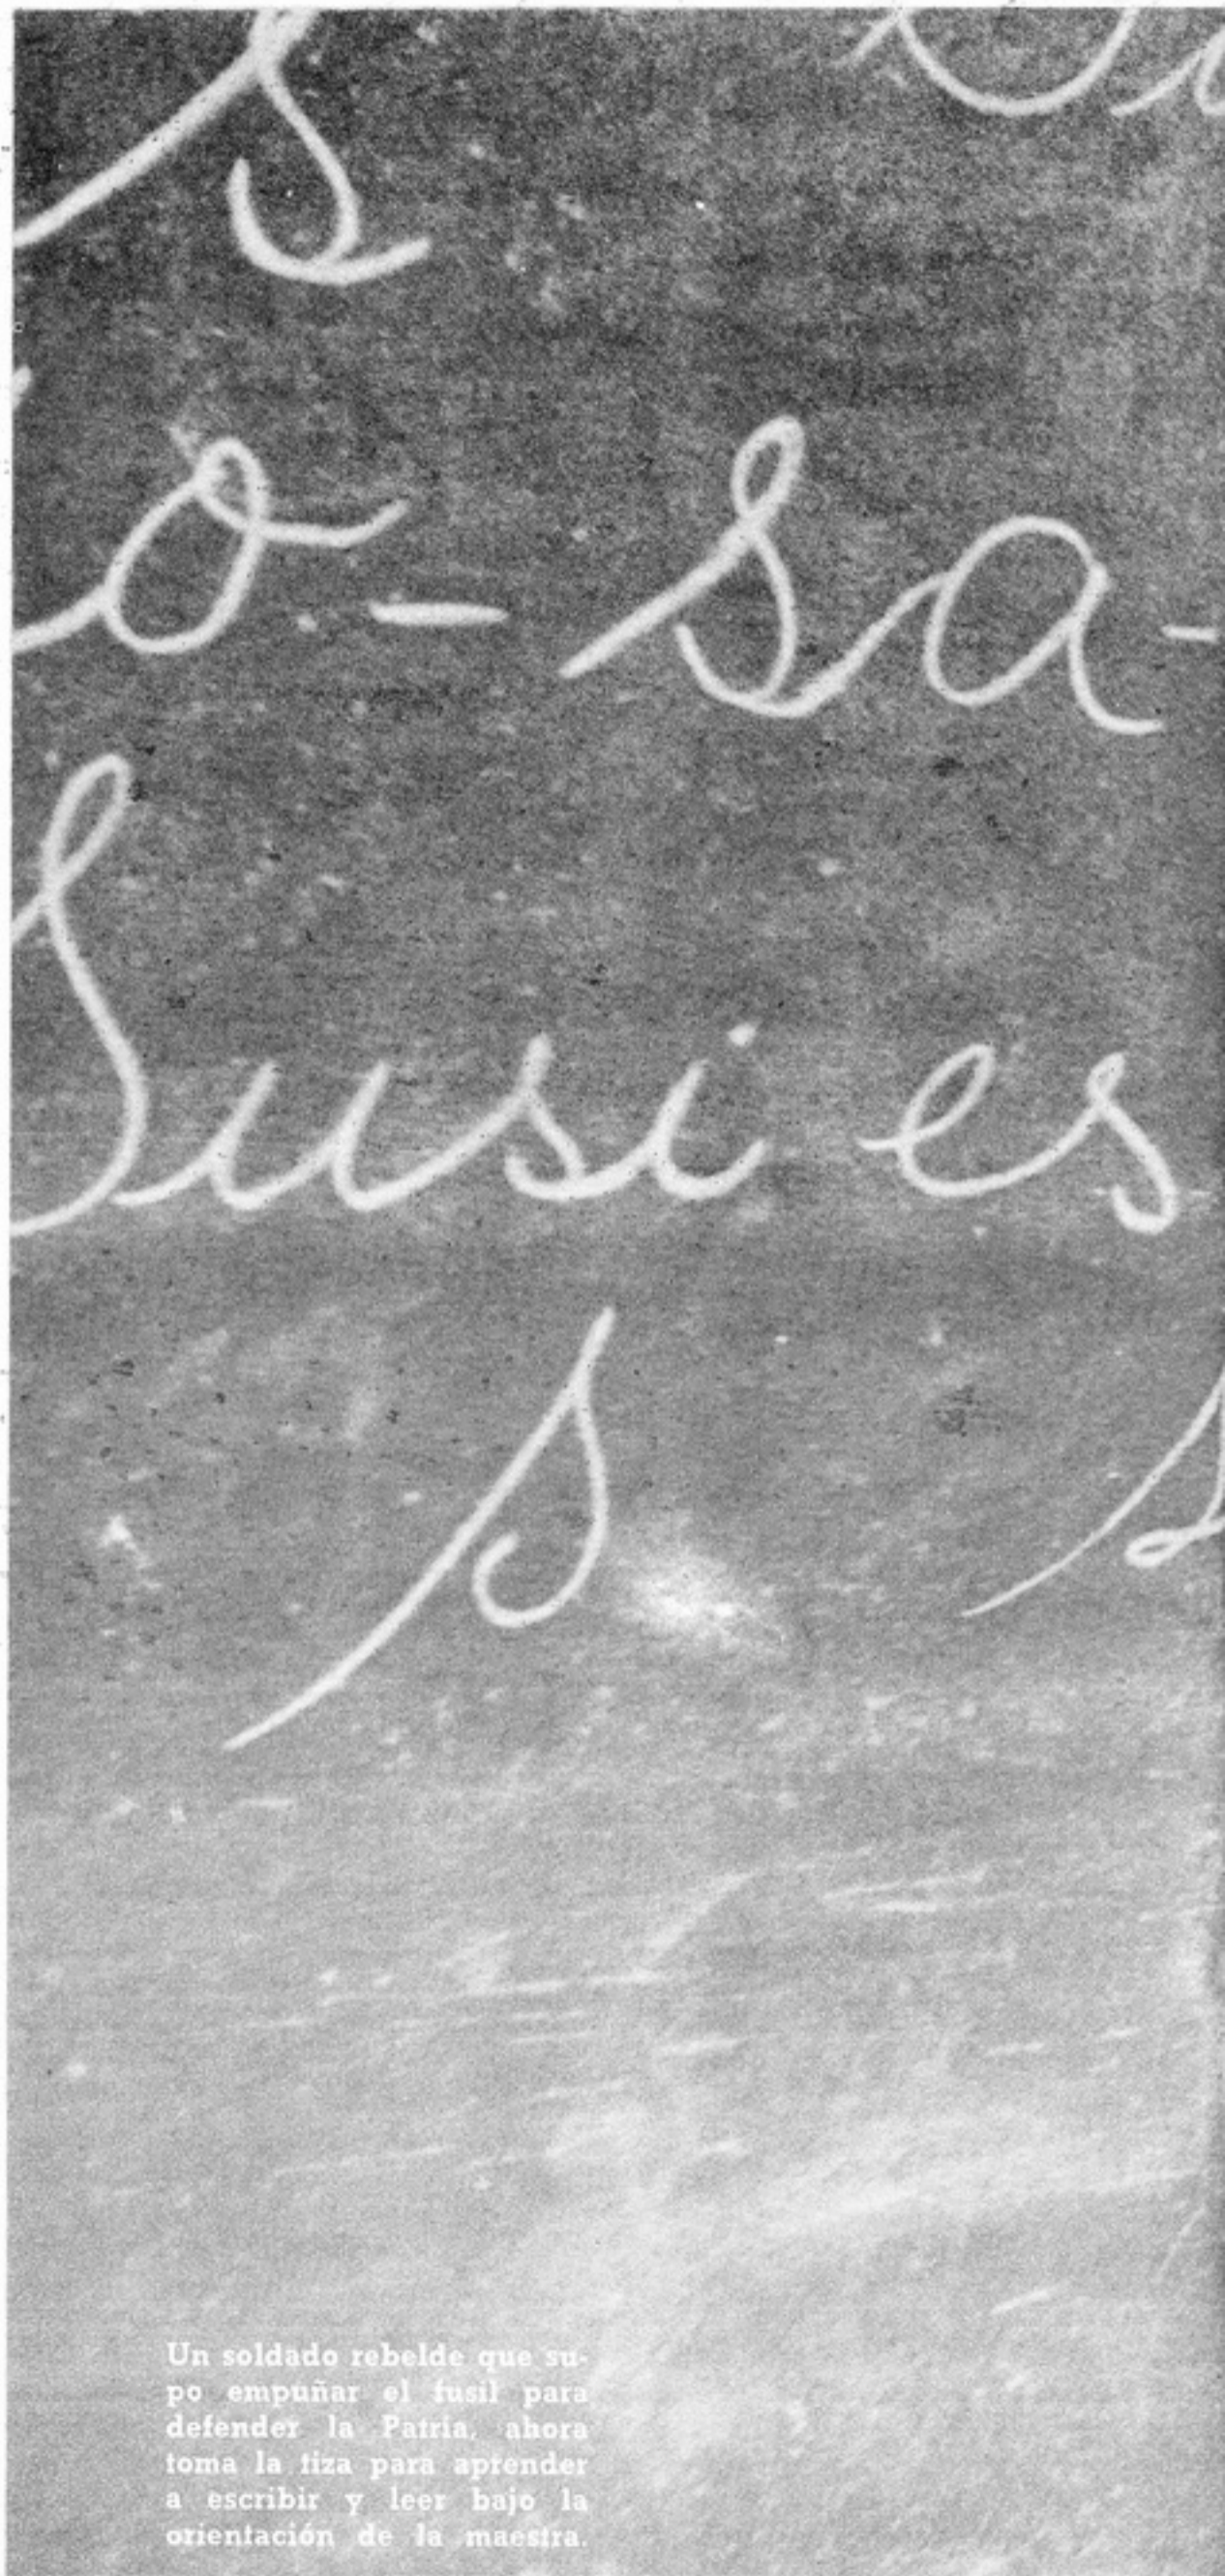 s
o - sa -
Susi es
s s
Un soldado rebelde que su-
po empuñar el fusil para
defender la Patria, ahora
toma la tiza para aprender
a escribir y leer bajo la
orientación de la maestra.